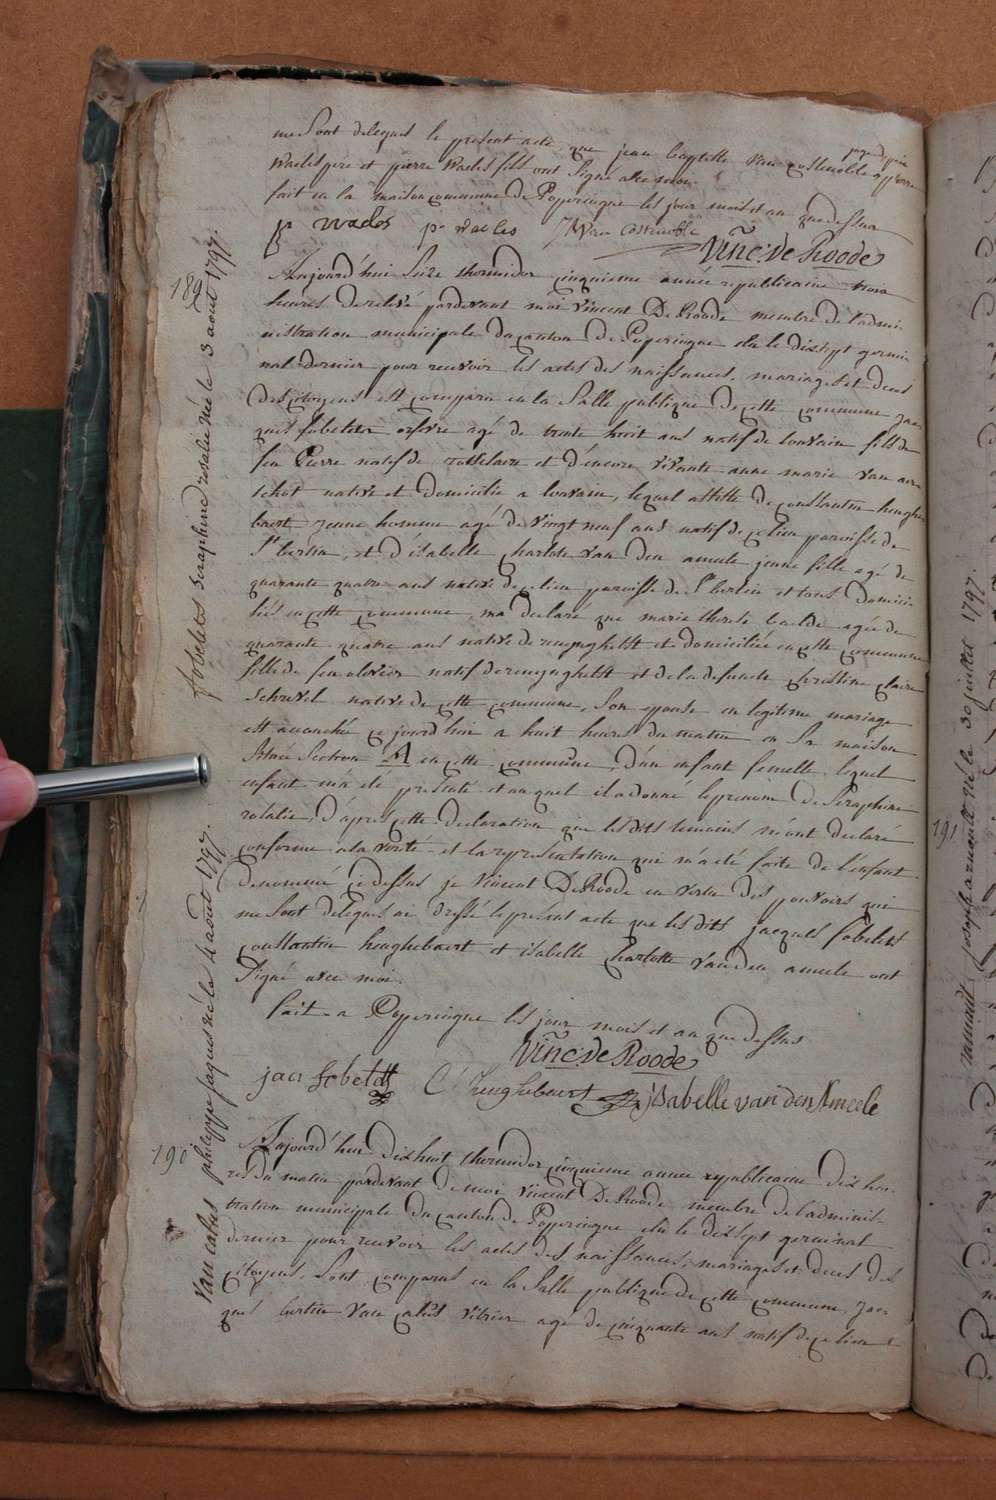 me Sont delegués le present acte, que jean baptiste Van costenoble pierre
Waels pere et pierre Waels fils ont Signé avec moi
fait en la maison commune de Poperingue les jour mois et an que dessus
p: waeles p: waeles J: Van Costenoble
Vinc: De Roode
189
fobelets Seraphine rosalie née le 3 août 1797.
Aujourd'hui Seize thermidor cinquieme année republicaine trois
heures de relevé pardevant moi Vincent De Roode membre de l'admi-
nistration municipale du canton de Poperingue elu le dixsept germi-
nal dernier pour recevoir les actes des naissances, mariages et deces
des citoyens est comparu en la Salle publique de cette commune jac-
ques fobelets orfevre agé de trente huit ans natif de louvain fils de
feu Pierre natif de rosselaere et d'encore vivante anne marie van
schot native et domiciliée a louvain, lequel assisté de constantin heughe-
baert jeune homme agé de vingt neuf ans natif de ce lieu paroisse de
St bertin, et d'isabelle charlotte van den ameele jeune fille agé de
quarante quatre ans native de ce lieu paroisse de St bertin et tous domici-
liés en cette commune, m'a declaré que marie therese baelde agée de
quarante quatre ans native de renynghelst et domiciliée en cette commune
fille de feu olivier natif de renynghelst et de la defuncte christine claire
Schrevel native de cette commune, Son epouse en legitime mariage
est accouchée ce jourd'hui a huit heures du matin en Sa maison
Située Section A en cette commune, d'un enfant femelle lequel
enfant m'a été presenté et auquel il a donné le prenom de Seraphine
rosalie, d'après cette declaration que les dits temoins m'ont declaré
conforme a la verité et la representation qui m'a été faite de l'enfant
denommé cidessus je Vincent De Roode en vertu des pouvoirs qui
me Sont delegués ai dressé le present acte que les dits jacques fobelets
constantin heughebaert et isabelle charlotte van den ameele ont
Signé avec moi
fait a Poperingue les jour mois et an que dessus
Vinc: De Roode
jacs fobelets C: heughebaert isabelle van den Ameele
190
Van cabus philippe jaques né le 4 août 1797.
Aujourd'hui dixhuit thermidor cinquieme année republicaine dix heu-
res du matin pardevant de moi Vincent De Roode membre de l'adminis-
tration municipale du canton de Poperingue elu le dixsept germinal
dernier pour recevoir les actes des naissances, mariages et deces des
citoyens, Sont comparus en la Salle publique de cette commune jac-
ques bertin Van cabus vitrier agé de cinquante ans natif de ce lieu
191
joseph né le 30 juillet 1797.